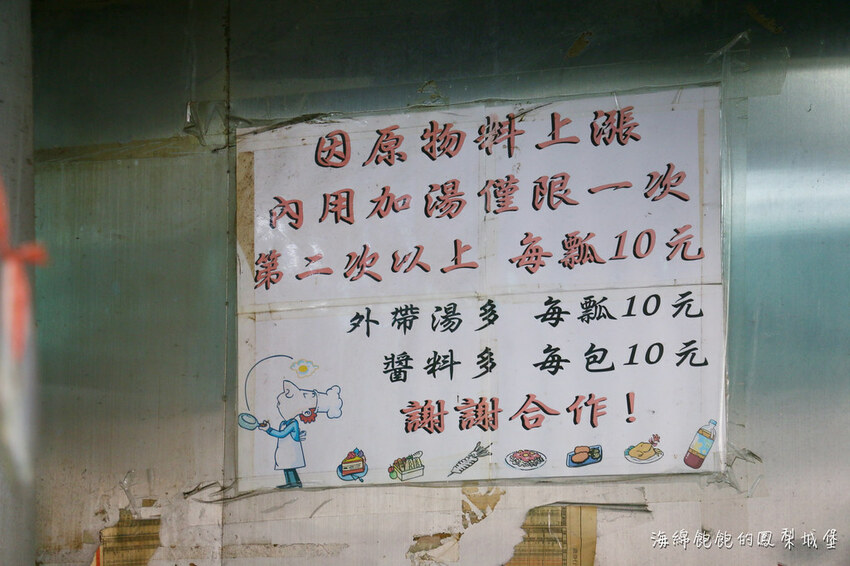 因原物料上漲
內用加湯僅限一次
第二次以上 每瓢10元
外帶湯多 每瓢10元
醬料多 每包10元
謝謝合作!
海綿飽飽的鳳梨城堡